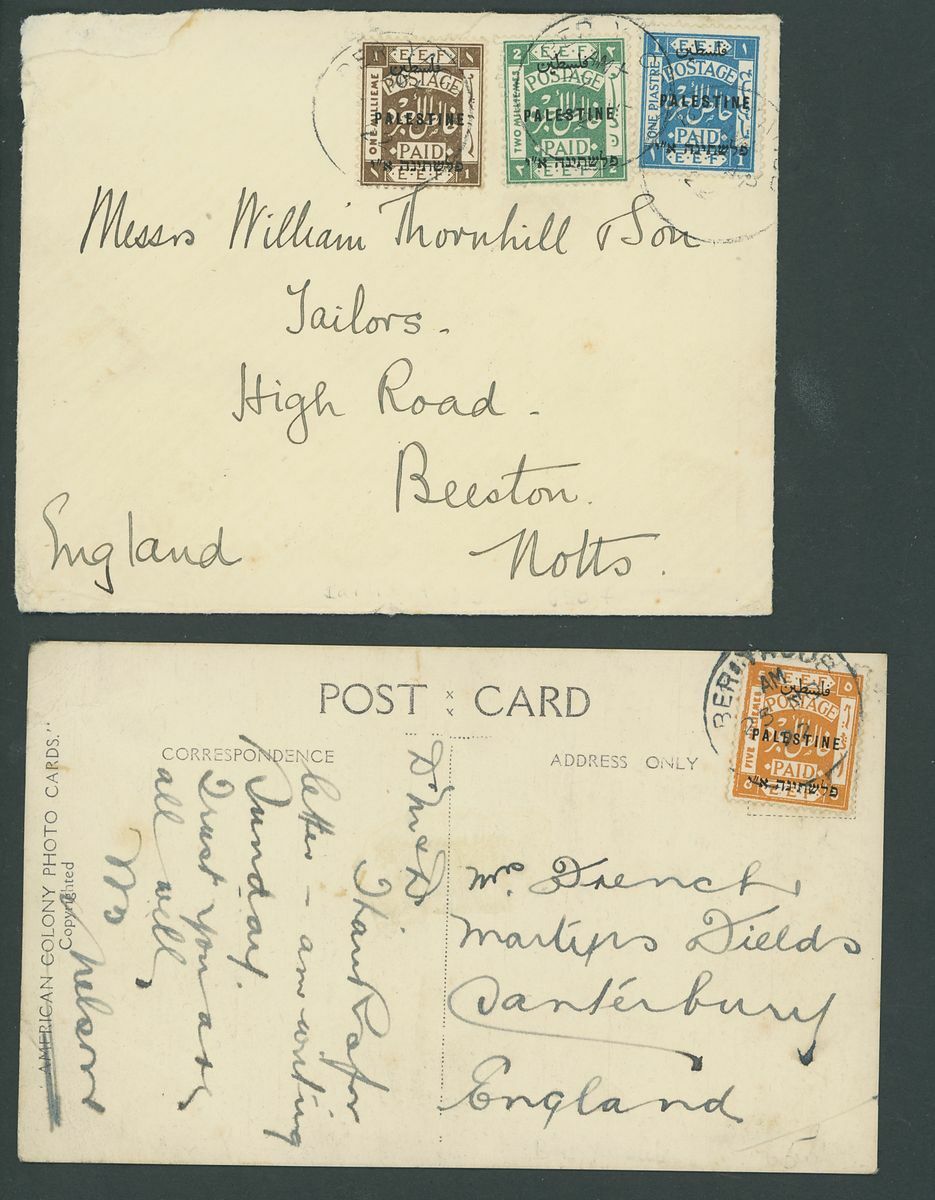 E.E.F
فلسطين
POSTAGE
ONE MILLIEME
PALESTINE
PAID
פלשתינה א״י
E.E.F
1
E.E.F
2
فلسطين
POSTAGE
TWO MILLIEMES
PALESTINE
PAID
פלשתינה א״י
E.E.F
2
E.E.F
1
فلسطين
POSTAGE
ONE PIASTRE
PALESTINE
PAID
פלשתינה א״י
E.E.F
1
Messrs William Thornhill & Son
Tailors.
High Road.
Beeston.
Notts.
England
POST CARD
CORRESPONDENCE
ADDRESS ONLY
"AMERICAN COLONY PHOTO CARDS."
Copyrighted
Thanks for
letter – am writing
Sunday.
Trust you are
all well
Nelson
AM
25 MR
فلسطين
POSTAGE
PALESTINE
PAID
פלשתינה א״י
E.E.F
Mrs French
Martyrs Fields
Canterbury
England